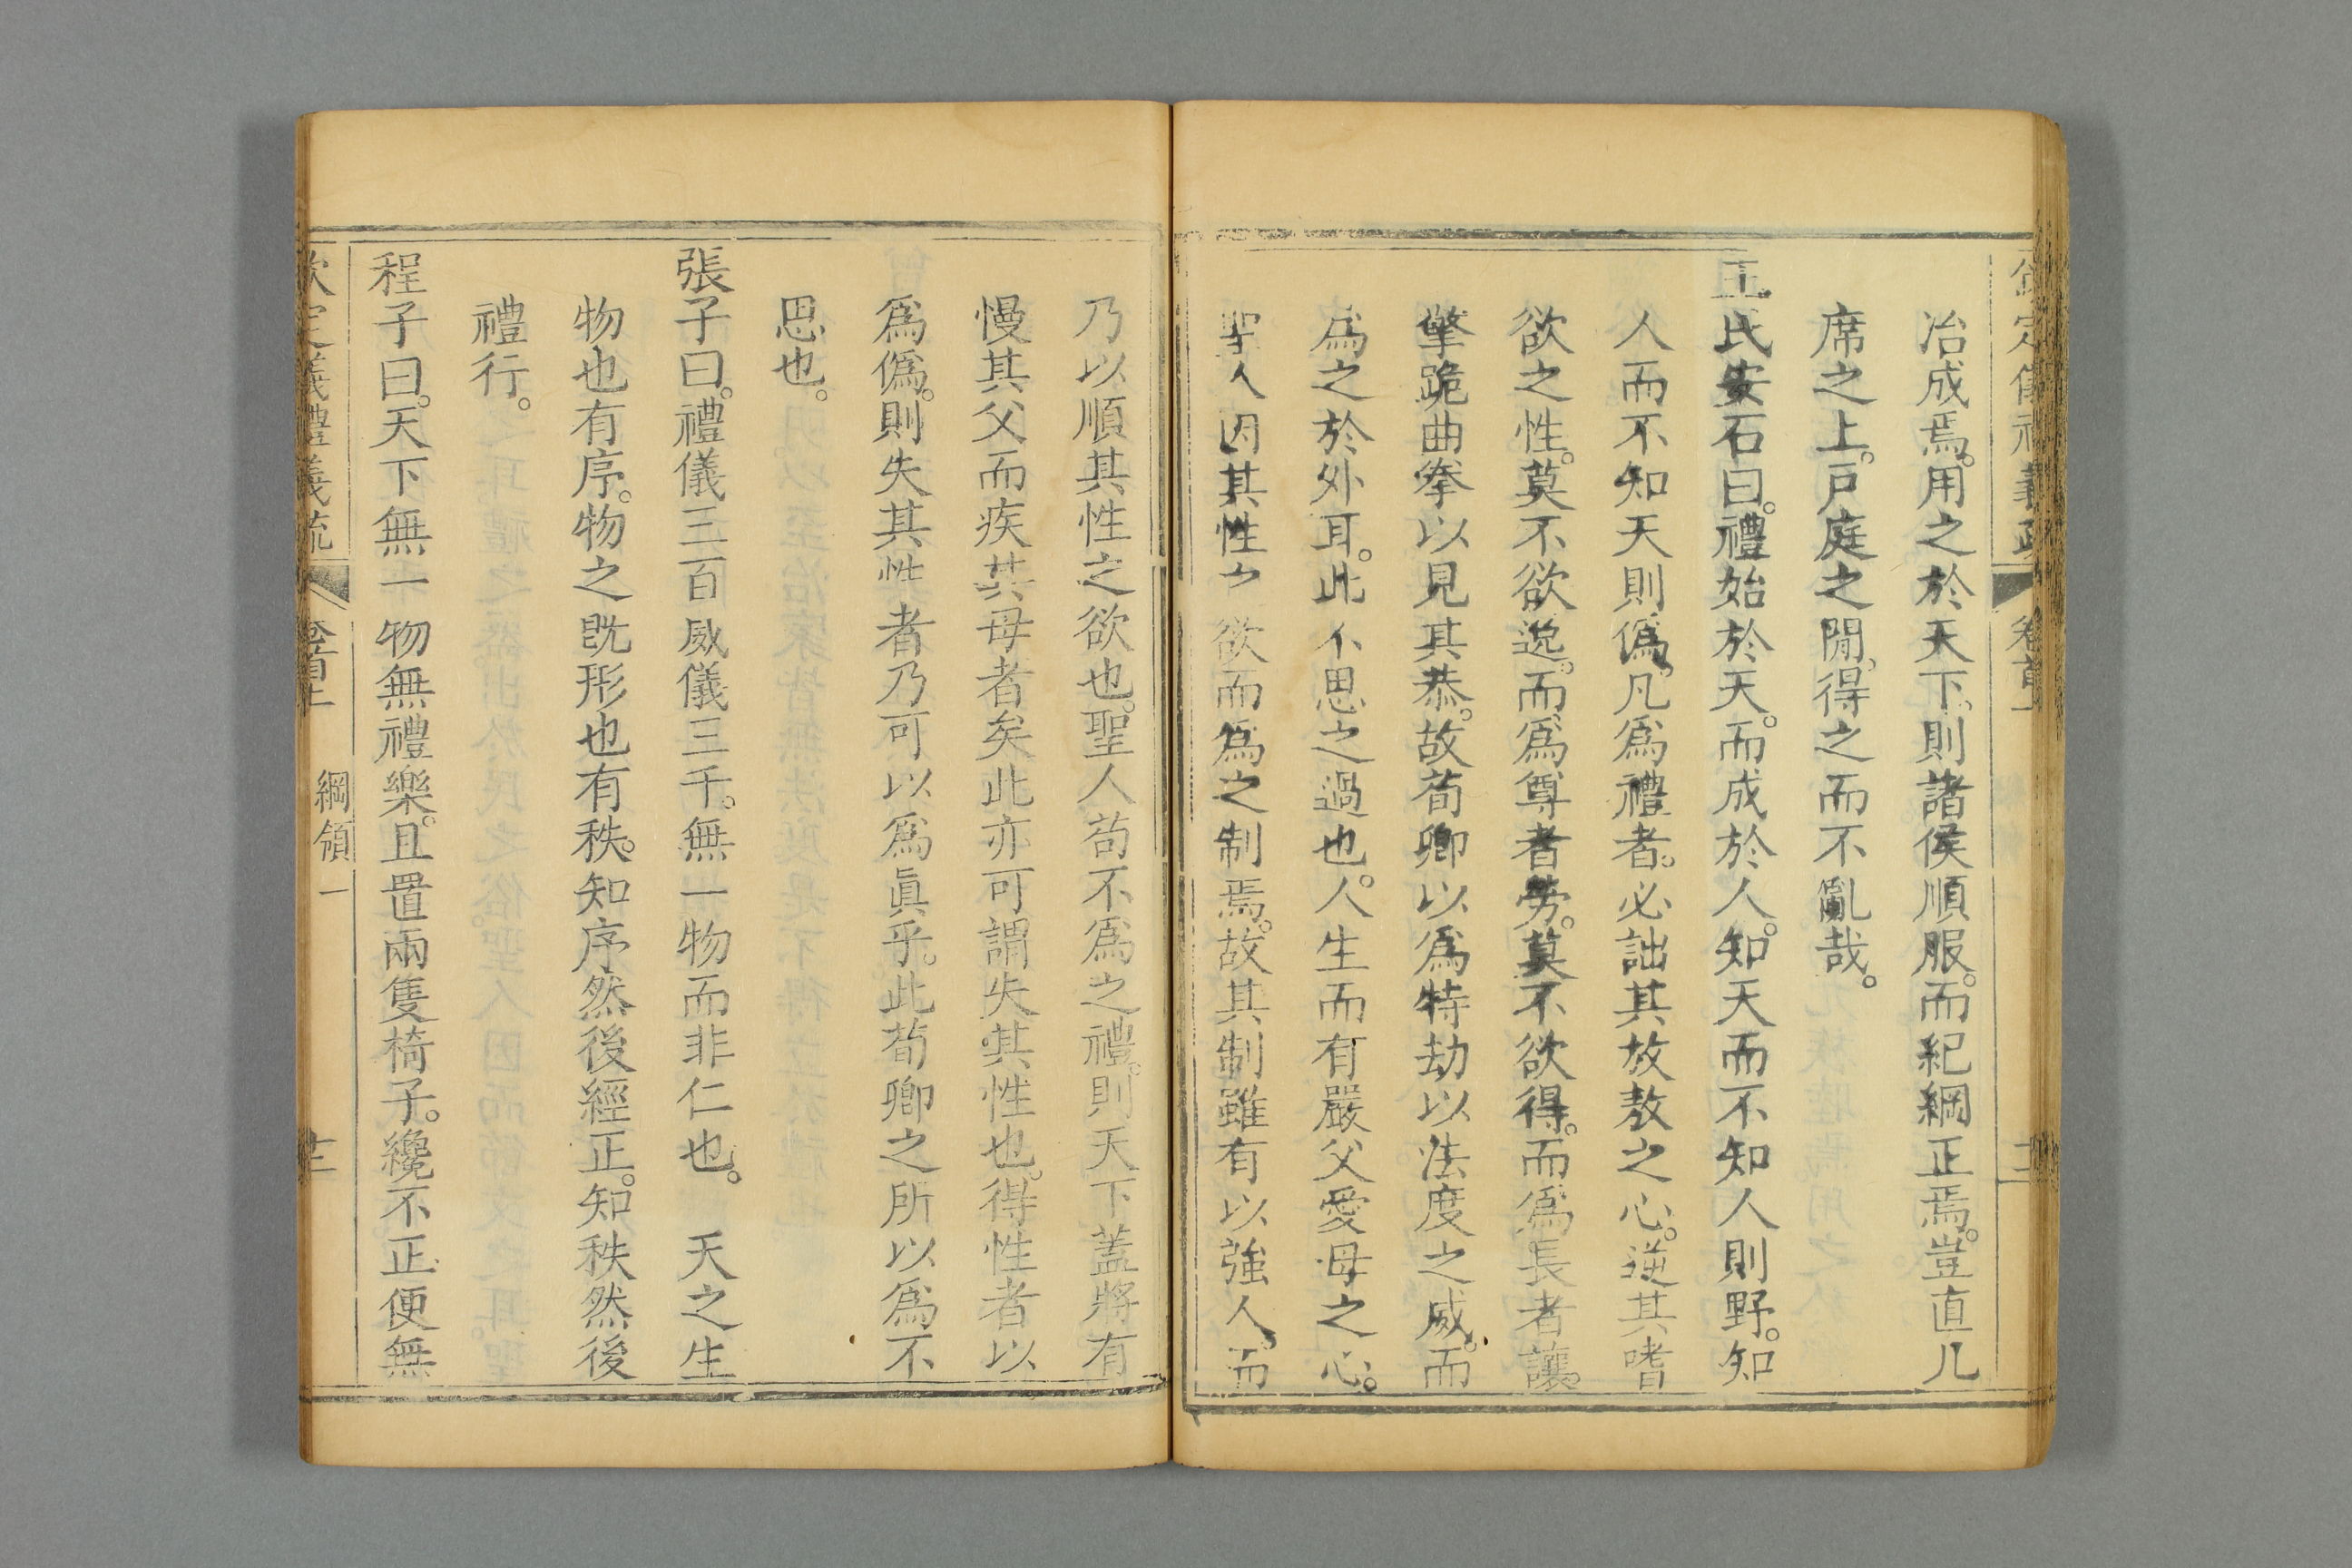 欽定儀禮義疏 卷首上
冶成焉。用之於天下、則諸侯順服。而紀綱正焉。豈直几
席之上。戸庭之閒、得之而不亂哉。
王氏安石曰。禮始於天。而成於人。知天而不知人則野。知
人而不知天則僞。凡爲禮者。必詘其放敖之心。逆其嗜
欲之性。莫不欲逸。而爲尊者勞。莫不欲得。而爲長者讓。
擎跪曲拳以見其恭。故荀卿以爲特劫以法度之威。而
爲之於外耳。此不思之過也。人生而有嚴父愛母之心。
聖人因其性之欲而爲之制焉。故其制雖有以強人。而
乃以順其性之欲也。聖人苟不爲之禮。則天下蓋將有
慢其父而疾其母者矣此亦可謂失其性也。得性者以
爲僞。則失其性者乃可以爲眞乎。此荀卿之所以爲不
思也。
張子曰。禮儀三百威儀三千。無一物而非仁也。 天之生
物也有序。物之既形也有秩。知序然後經正。知秩然後
禮行。
程子曰。天下無一物無禮樂。且置兩隻椅子。纔不正便無
欽定儀禮義疏 卷首上 綱領一